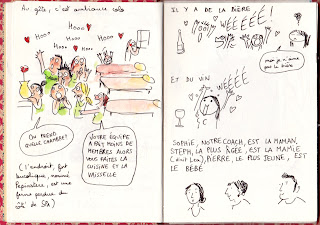 Au gîte, c'est ambiance colo
Hooo
Hooo
Hooo
Hooo
ON PREND
QUELLE CHAMBRE?
VOTRE ÉQUIPE
A PAS MOINS DE
MEMBRES ALORS
VOUS FAITES LA
CUISINE ET LA
VAISSELLE
(L'endroit, fort
bucolique, nommé
Pepinature, est une
ferme perdue du
côté de
IL Y A DE LA BIÈRE
WÉÉÉÉ!
moi je n'aime
pas la bière
ET DU VIN
WÉÉÉÉ
SOPHIE, NOTRE COACH, EST LA MAMAN,
STEPH, LA PLUS ÂGÉE, EST LA MAMIE
PIERRE, LE PLUS JEUNE, EST
LE BÉBÉ